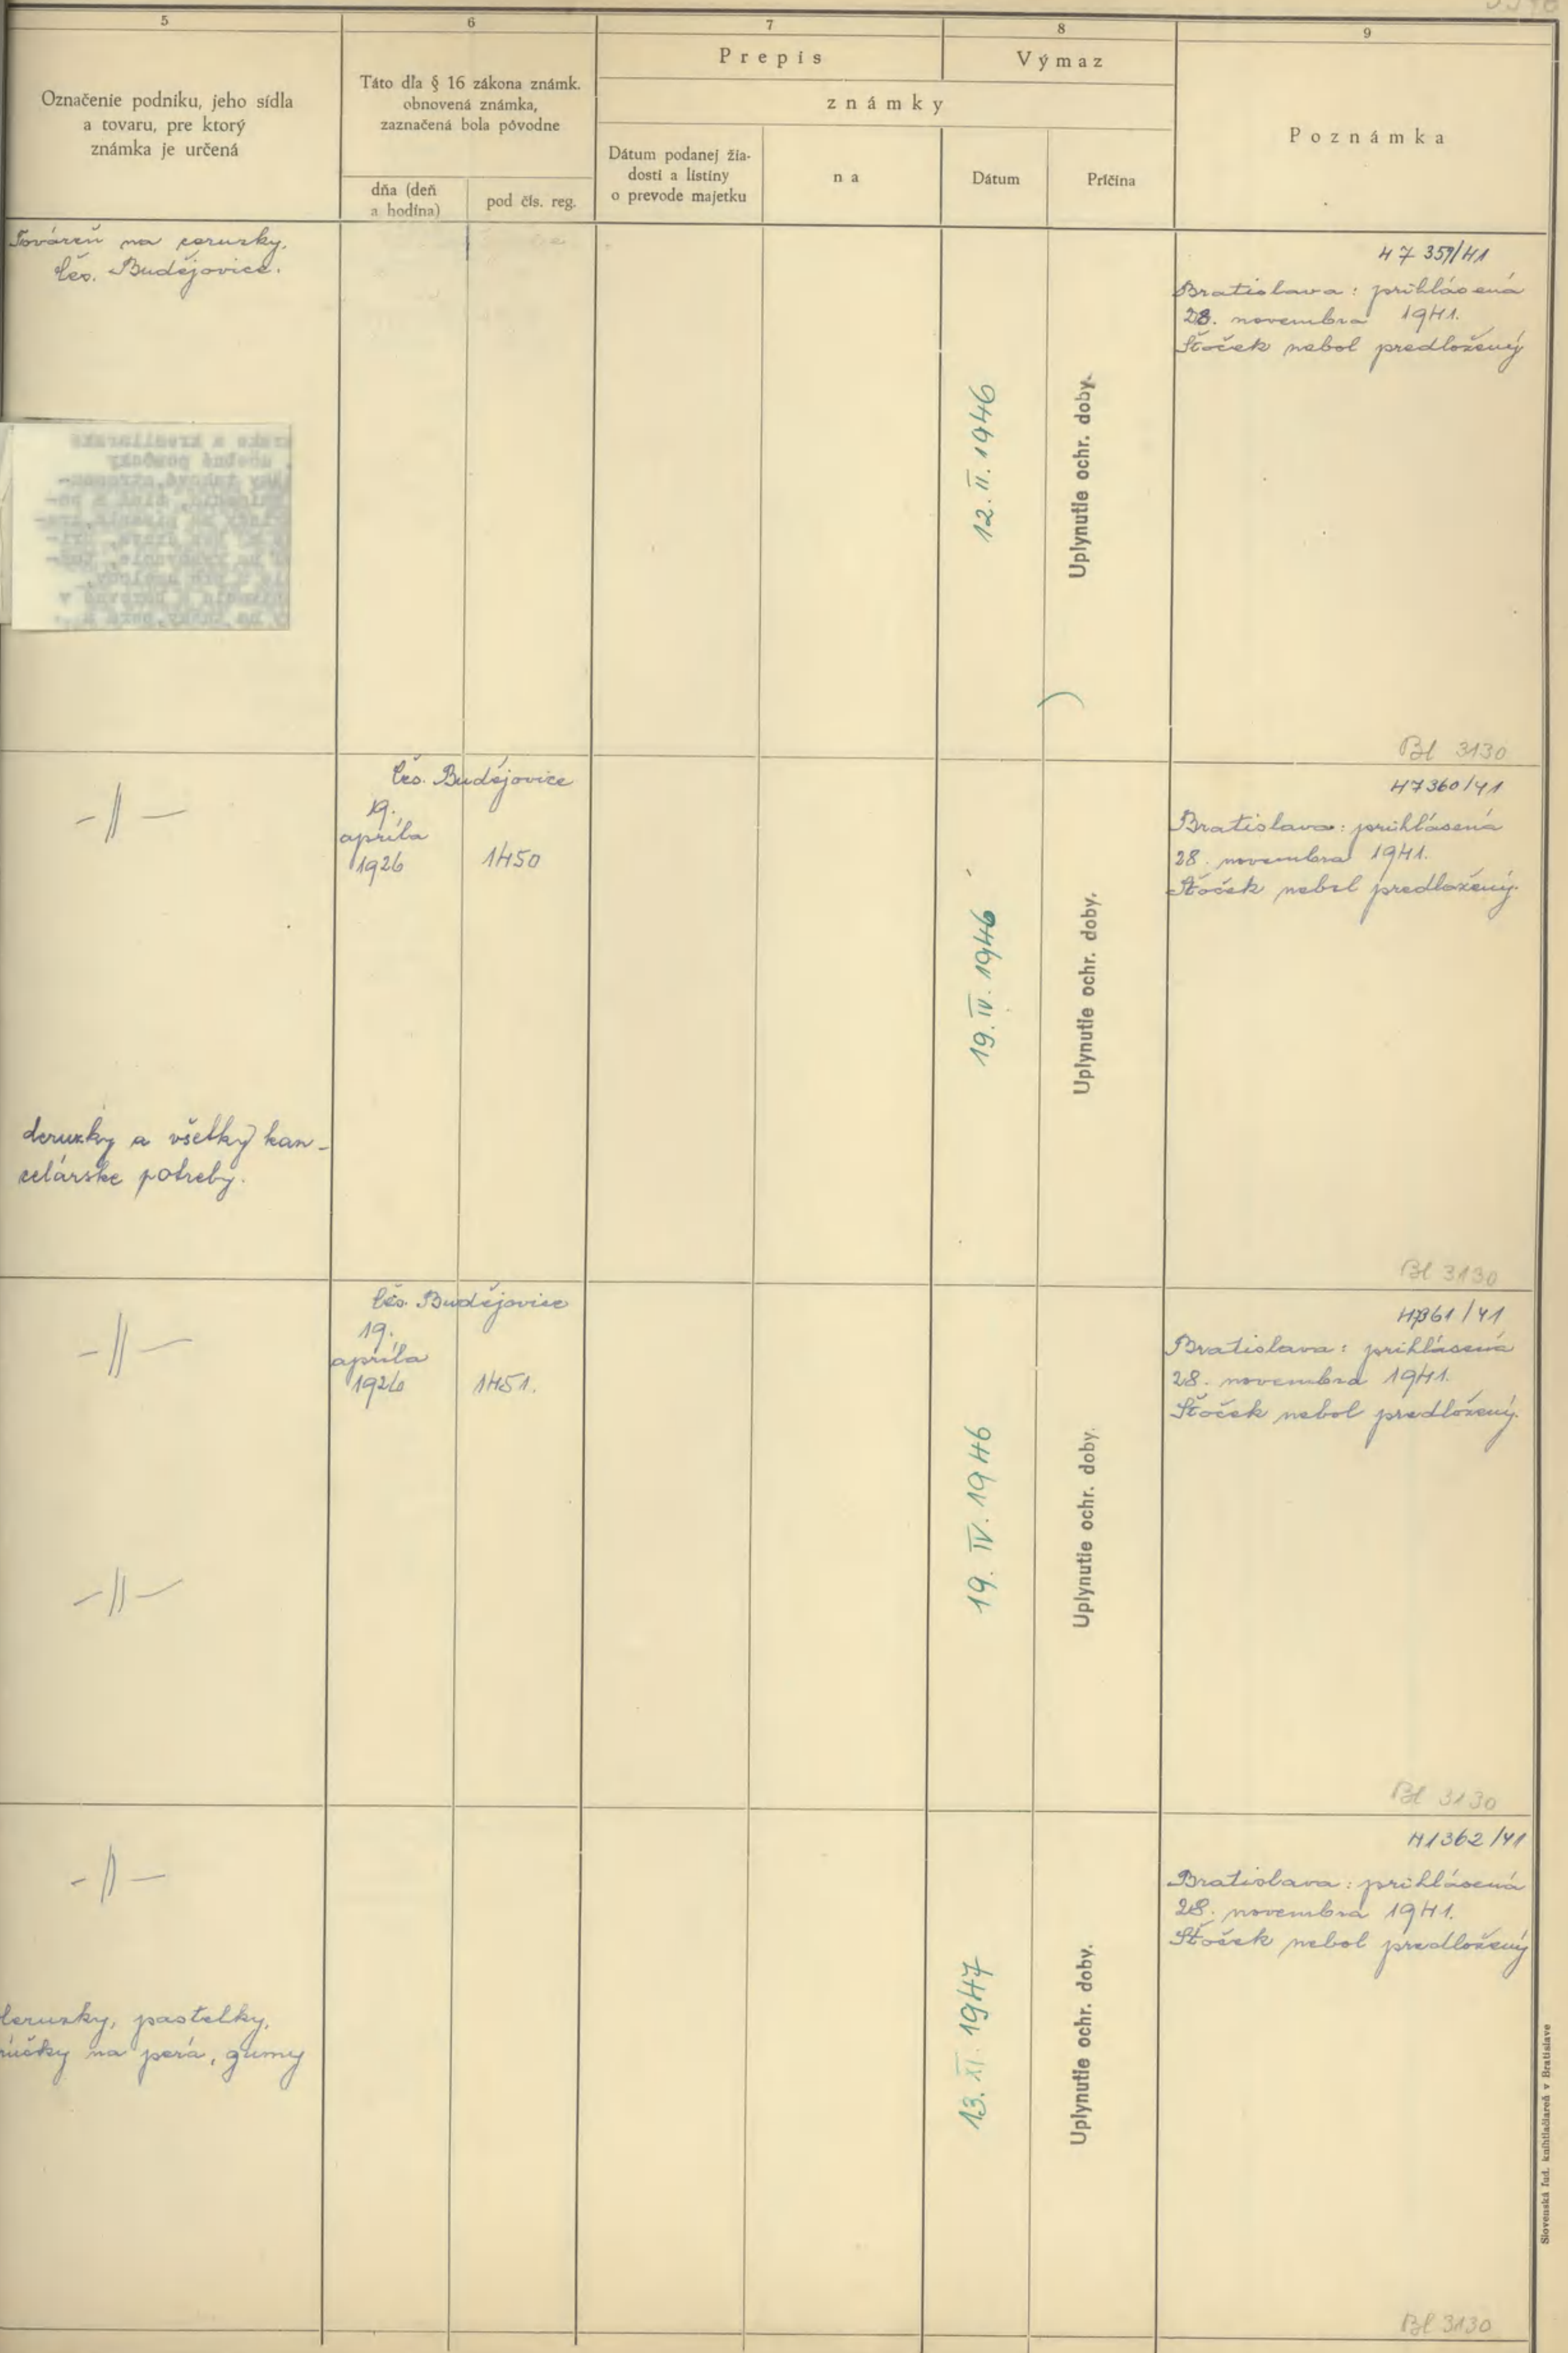 5
6
7
8
9
Označenie podniku, jeho sídla
a tovaru, pre ktorý
známka je určená
Táto dľa § 16 zákona známk.
obnovená známka,
zaznačená bola pôvodne
dňa (deň
a hodina)
pod čís. reg.
Prepis
Výmaz
známky
Dátum podanej žia-
dosti a listiny
o prevode majetku
na
Dátum
Príčina
Poznámka
Továreň na ceruzky.
Čes. Budějovice.
12. II. 1946
Uplynutie ochr. doby.
47 359/41
Bratislava: prihlásená
28. novembra 1941.
Štoček nebol predložený
Bl 3130
-||-
Čes. Budějovice
19.
apríla
1926
1450
ceruzky a všetky kan-
celárske potreby.
19. IV. 1946
Uplynutie ochr. doby.
47360/41
Bratislava: prihlásená
28. novembra 1941.
Štoček nebol predložený.
Bl 3130
-||-
Čes. Budějovice
19.
apríla
1926
1451.
-||-
19. IV. 1946
Uplynutie ochr. doby.
47361/41
Bratislava: prihlásená
28. novembra 1941.
Štoček nebol predložený.
Bl 3130
-||-
ceruzky, pastelky,
rúčky na perá, gumy
13. XI. 1947
Uplynutie ochr. doby.
47362/41
Bratislava: prihlásená
28. novembra 1941.
Štoček nebol predložený
Bl 3130
Slovenská ľud. kníhtlačiareň v Bratislave